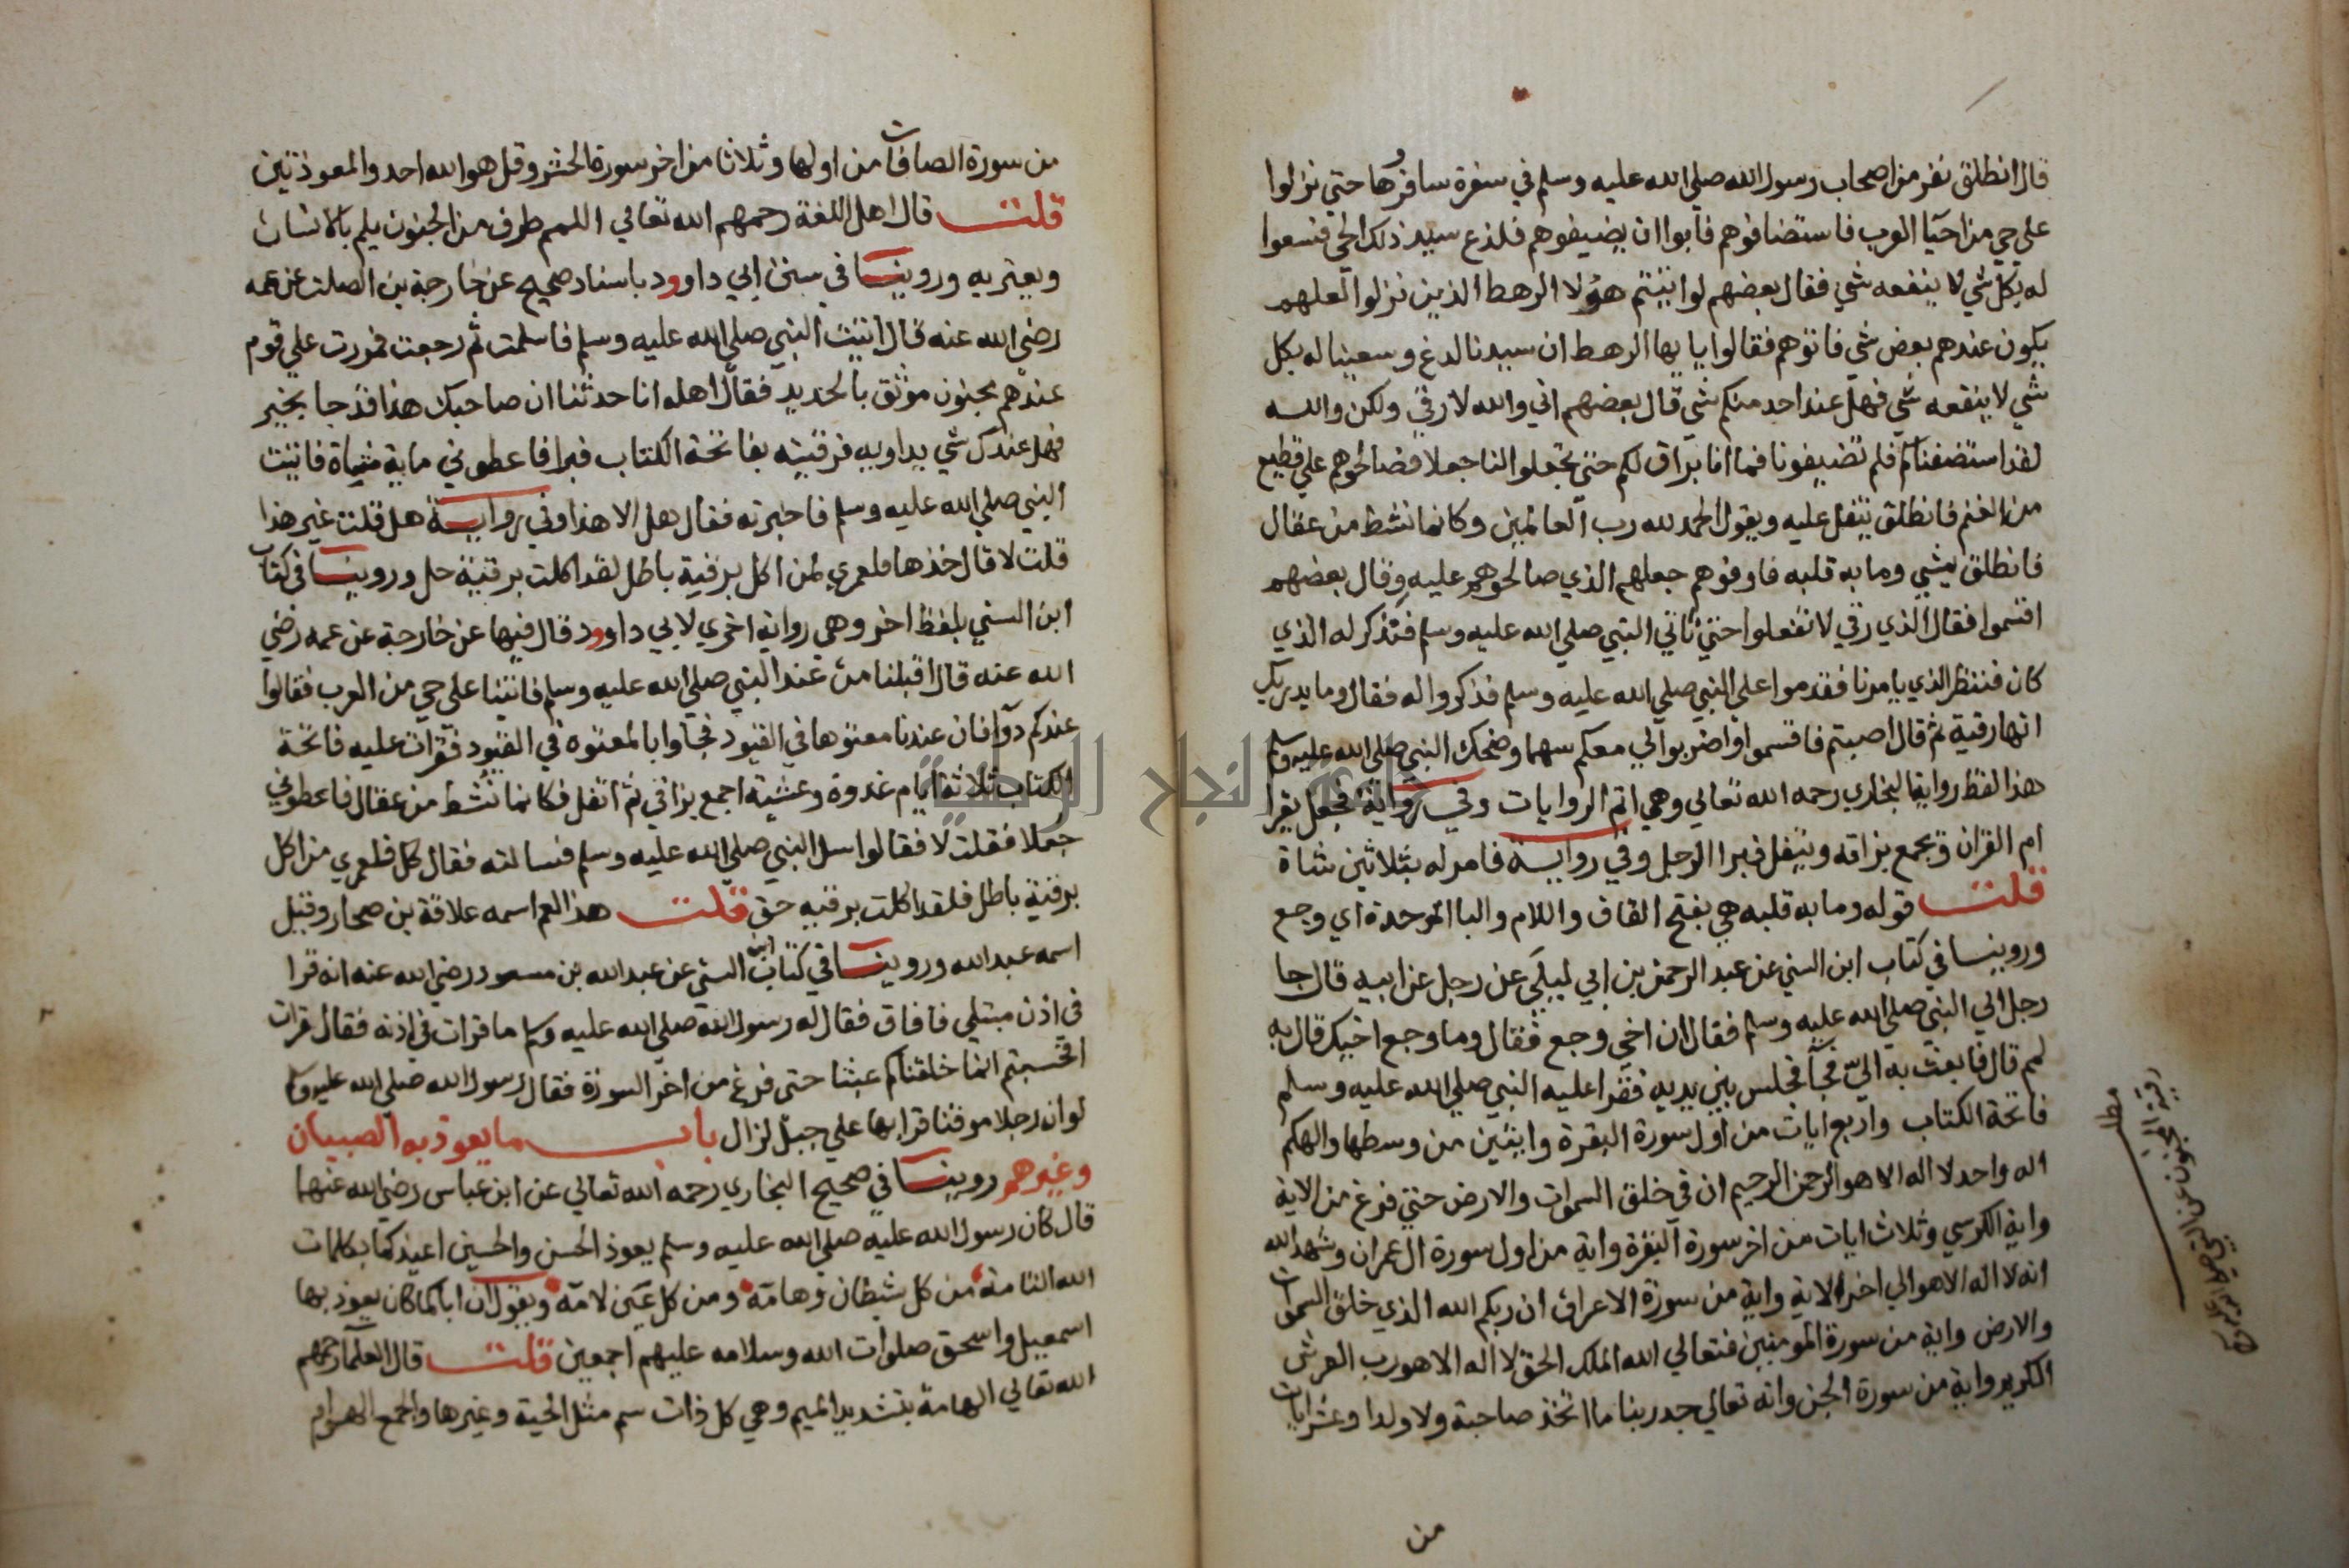 قال انطلق نفر من اصحاب رسول الله صلي الله عليه وسلم في سفرة سافروها حتي نزلوا
علي حي من احيا العرب فاستضافوهم فابوا ان يضيفوهم فلدغ سيد ذلك الحي فسعوا
له بكل شي لا ينفعه شي فقال بعضهم لو اتيتم هؤلا الرهط الذين نزلوا لعلهم
يكون عندهم بعض شي فاتوهم فقالوا يا يها الرهط ان سيدنا لدغ وسعينا له بكل
شي لا ينفعه شي فهل عند احد منكم شي قال بعضهم اني والله لارقي ولكن والله
لقد استضفناكم فلم تضيفونا فما انا براق لكم حتي تجعلوا لنا جعلا فصالحوهم علي قطيع
من الغنم فانطلق يتفل عليه ويقول الحمد لله رب العالمين وكانما نشط من عقال
فانطلق يمشي وما به قلبه فاوفوهم جعلهم الذي صالحوهم عليه وقال بعضهم
اقسموا فقال الذي رقي لا تفعلوا حتي ناتي النبي صلي الله عليه وسلم فنذكر له الذي
كان فننظر الذي يامرنا فقدموا علي النبي صلي الله عليه وسلم فذكروا له فقال وما يدريك
انها رقية ثم قال اصبتم فاقسموا واضربوا لي معكم سهما وضحك النبي صلي الله عليه وسلم
هذا لفظ رواية البخاري رحمه الله تعالي وهي اتم الروايات وفي رواية فجعل يقرا
ام القران ويجمع بزاقه ويتفل فبرا الرجل وفي رواية فامر له بثلاثين شاة
قلت قوله وما به قلبه هي بفتح القاف واللام والبا الموحدة اي وجع
وروينا في كتاب ابن السني عن عبد الرحمن بن ابي ليلي عن رجل عن ابيه قال جا
رجل الي النبي صلي الله عليه وسلم فقال ان اخي وجع فقال وما وجع اخيك قال به
لمم قال فابعث به الي فجا فجلس بين يديه فقرا عليه النبي صلي الله عليه وسلم
فاتحة الكتاب واربع ايات من اول سورة البقرة وايتين من وسطها والهكم
اله واحد لا اله الا هو الرحمن الرحيم ان في خلق السموات والارض حتي فرغ من الاية
واية الكرسي وثلاث ايات من اخر سورة البقرة واية من اول سورة ال عمران وشهد الله
انه لا اله الا هو الي اخر الاية واية من سورة الاعراف ان ربكم الله الذي خلق السموات
والارض واية من سورة المومنين فتعالي الله الملك الحق لا اله الا هو رب العرش
الكريم واية من سورة الجن وانه تعالي جد ربنا ما اتخذ صاحبة ولا ولدا وعشر ايات
من
مطلب
من سورة الصافات من اولها وثلاثا من اخر سورة الحشر وقل هو الله احد والمعوذتين
قلت قال اهل اللغة رحمهم الله تعالي اللمم طرف من الجنون يلم بالانسان
ويعتريه وروينا في سنن ابي داوود باسناد صحيح عن خارجة بن الصلت عن عمه
رضي الله عنه قال اتيت النبي صلي الله عليه وسلم فاسلمت ثم رجعت فمررت علي قوم
عندهم مجنون موثق بالحديد فقال اهله انا حدثنا ان صاحبك هذا قد جا بخير
فهل عندك شي يداويه فرقيته بفاتحة الكتاب فبرا فاعطوني ماية شاة فاتيت
النبي صلي الله عليه وسلم فاخبرته فقال هل الا هذا وفي رواية هل قلت غير هذا
قلت لا قال خذها فلعمري لمن اكل برقية باطل لقد اكلت برقية حل وروينا في كتاب
ابن السني بلفظ اخر وهي رواية اخري لابي داوود قال فيها عن خارجة عن عمه رضي
الله عنه قال اقبلنا من عند النبي صلي الله عليه وسلم فاتينا علي حي من العرب فقالوا
عندكم دوا فان عندنا معتوها في القيود فجاوا بالمعتوه في القيود فقرات عليه فاتحة
الكتاب ثلاثة ايام غدوة وعشية اجمع بزاقي ثم اتفل فكانما نشط من عقال فاعطوني
جعلا فقلت لا فقالوا سل النبي صلي الله عليه وسلم فسالته فقال كل فلعمري من اكل
برقية باطل فلقد اكلت برقيه حق قلت هذا العم اسمه علاقة بن صحار وقيل
اسمه عبد الله وروينا في كتاب ابن السني عن عبد الله بن مسعود رضي الله عنه انه قرا
في اذن مبتلي فافاق فقال له رسول الله صلي الله عليه وسلم ما قرات في اذنه فقال قرات
افحسبتم انما خلقناكم عبثا حتي فرغ من اخر السورة فقال رسول الله صلي الله عليه وسلم
لو ان رجلا موقنا قرا بها علي جبل لزال باب ما يعوذ به الصبيان
وغيرهم روينا في صحيح البخاري رحمه الله تعالي عن ابن عباس رضي الله عنهما
قال كان رسول الله عليه صلي الله عليه وسلم يعوذ الحسن والحسين اعيذكما بكلمات
الله التامة من كل شيطان وهامة ومن كل عين لامة ويقول ان اباكما كان يعوذ بها
اسمعيل واسحق صلوات الله وسلامه عليهم اجمعين قلت قال العلما رحمهم
الله تعالي الهامة بتشديد الميم وهي كل ذات سم مثل الحية وغيرها والجمع الهوام